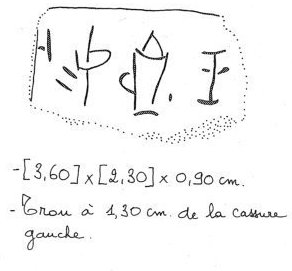 -[3,60]×[2,30]× 0,90 cm.
- Trou à 1,30 cm. de la cassure
gauche.